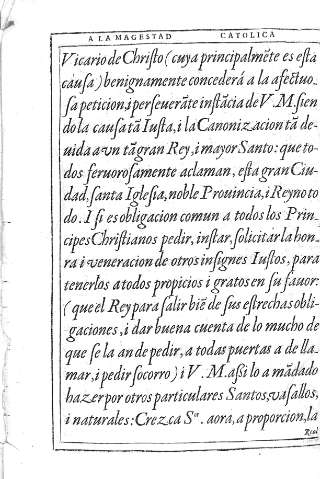 A LA MAGESTAD CATOLICA
Vicario de Christo (cuya principalmẽte es esta
causa) benignamente concederá a la afectuo-
sa peticion, i perseuerãte instãcia de V. M. sien
do la causa tã Iusta, i la Canonizacion tã de-
uida a vn tã gran Rey, i mayor Santo: que to-
dos feruorosamente aclaman, esta gran Ciu-
dad, santa Iglesia, noble Prouincia, i Reyno to
do. I si es obligacion comun a todos los Prin-
cipes Christianos pedir, instar, solicitar la hon-
ra i veneracion de otros insignes Iustos, para
tenerlos a todos propicios i gratos en su fauor:
(que el Rey para salir biẽ de sus estrechas obli-
gaciones, i dar buena cuenta de lo mucho de
que se la an de pedir, a todas puertas a de lla-
mar, i pedir socorro) i V. M. assi lo a mãdado
hazer por otros particulares Santos, vasallos,
i naturales: Crezca Sr. aora, a proporcion, la
Real